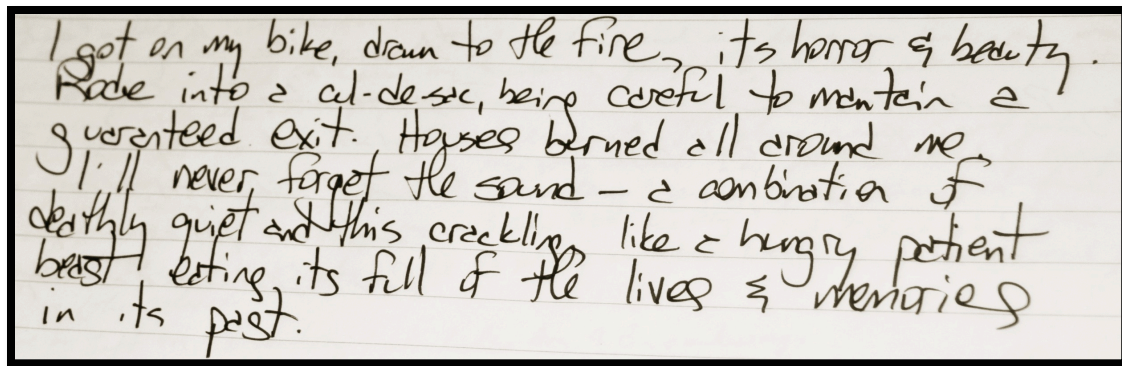 I got on my bike, drawn to the fire, its horror & beauty.
Rode into a cul-de-sac, being careful to maintain a
guaranteed exit. Houses burned all around me.
I'll never forget the sound – a combination of
deathly quiet and this crackling, like a hungry patient
beast eating its full of the lives & memories
in its past.